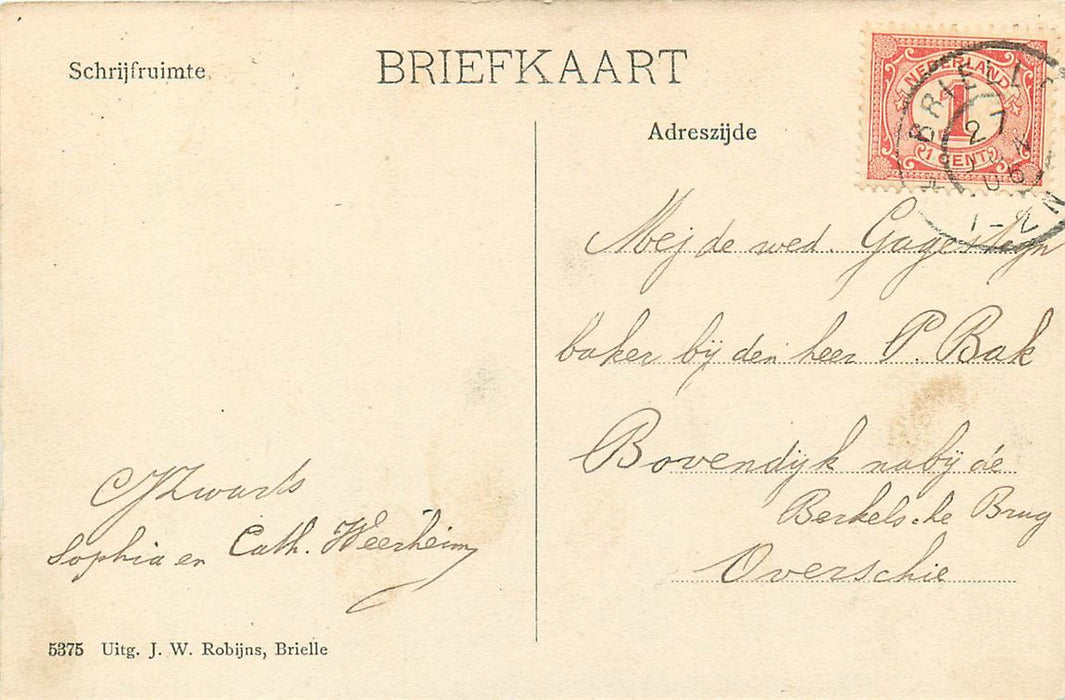 Schrijfruimte
BRIEFKAART
Adreszijde
NEDERLAND
1
1 CENT
BRIELLE
27
JUN
06
1-2 N
Mej de wed. Gagesteijn
baker bij den heer P. Bak
Bovendijk nabij de
Berkelsche Brug
Overschie
CJZwarts
Sophia en Cath. Weerheim
5375 Uitg. J. W. Robijns, Brielle